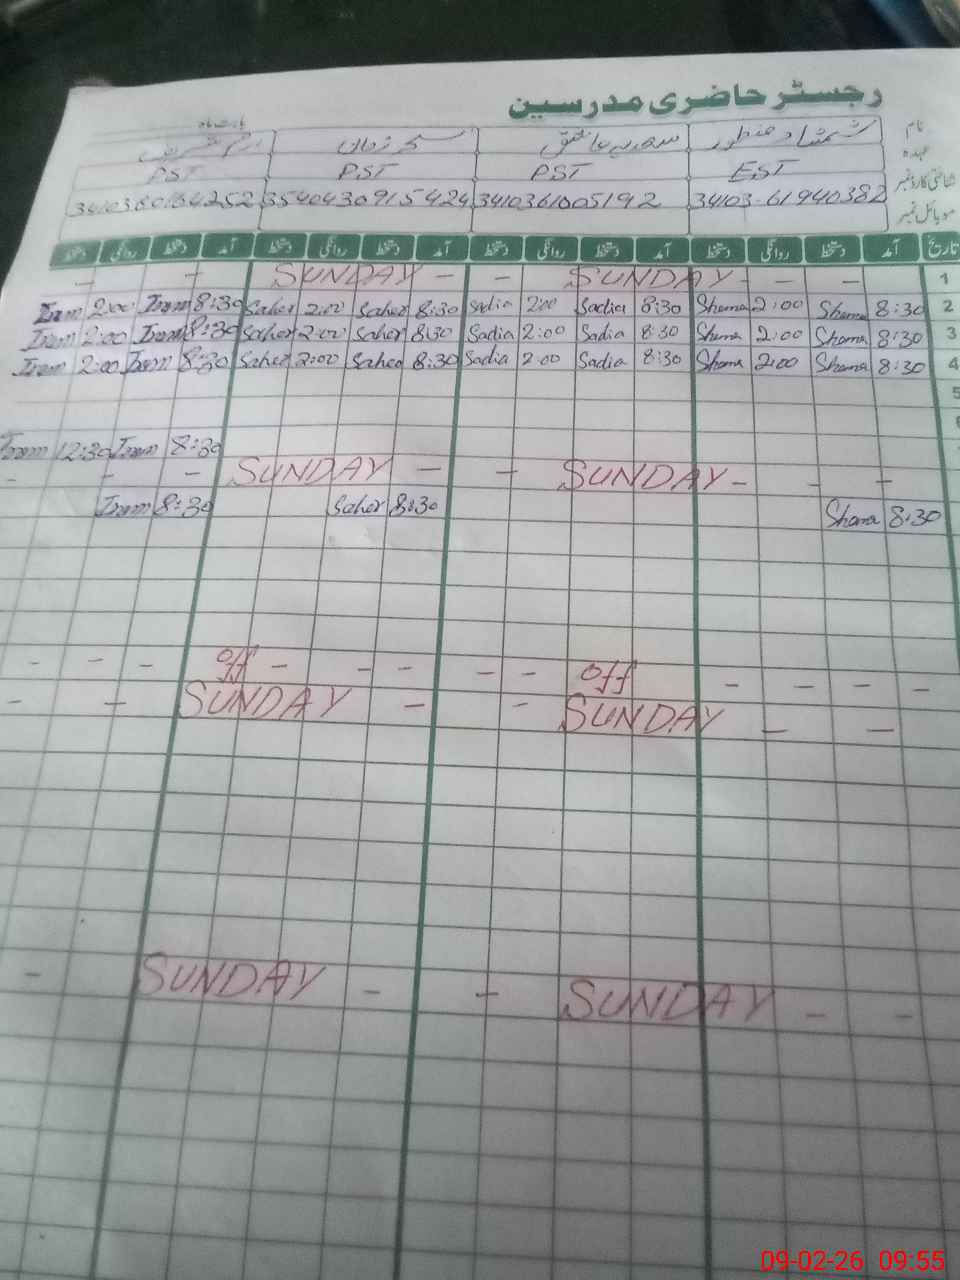 رجسٹر حاضری مدرسین
بابت ماہ
نام شمشاد منظور سعدیہ عاشق سحر زمان
عہدہ EST PST PST PST
شناختی کارڈ نمبر 34103-61940382 3410361005192 3540430915424
موبائل نمبر
تاریخ آمد دستخط روانگی دستخط آمد دستخط روانگی دستخط آمد دستخط روانگی دستخط آمد دستخط روانگی دستخط
- - SUNDAY - - SUNDAY - - - 1
Iram 2:00 Iram 8:30 Saher 2:00 Saher 8:30 Sadia 2:00 Sadia 8:30 Shama 2:00 Shama 8:30 2
Iram 2:00 Iram 8:30 Saher 2:00 Saher 8:30 Sadia 2:00 Sadia 8:30 Shama 2:00 Shama 8:30 3
Iram 2:00 Iram 8:30 Saher 2:00 Saher 8:30 Sadia 2:00 Sadia 8:30 Shama 2:00 Shama 8:30 4
5
6
Iram 12:30 Iram 8:30
- - - SUNDAY - - SUNDAY - - -
Iram 8:30 Saher 8:30 Shama 8:30
- - - off - - - - - off - - - -
- - SUNDAY - - SUNDAY - -
- SUNDAY - - SUNDAY - -
09-02-26 09:55